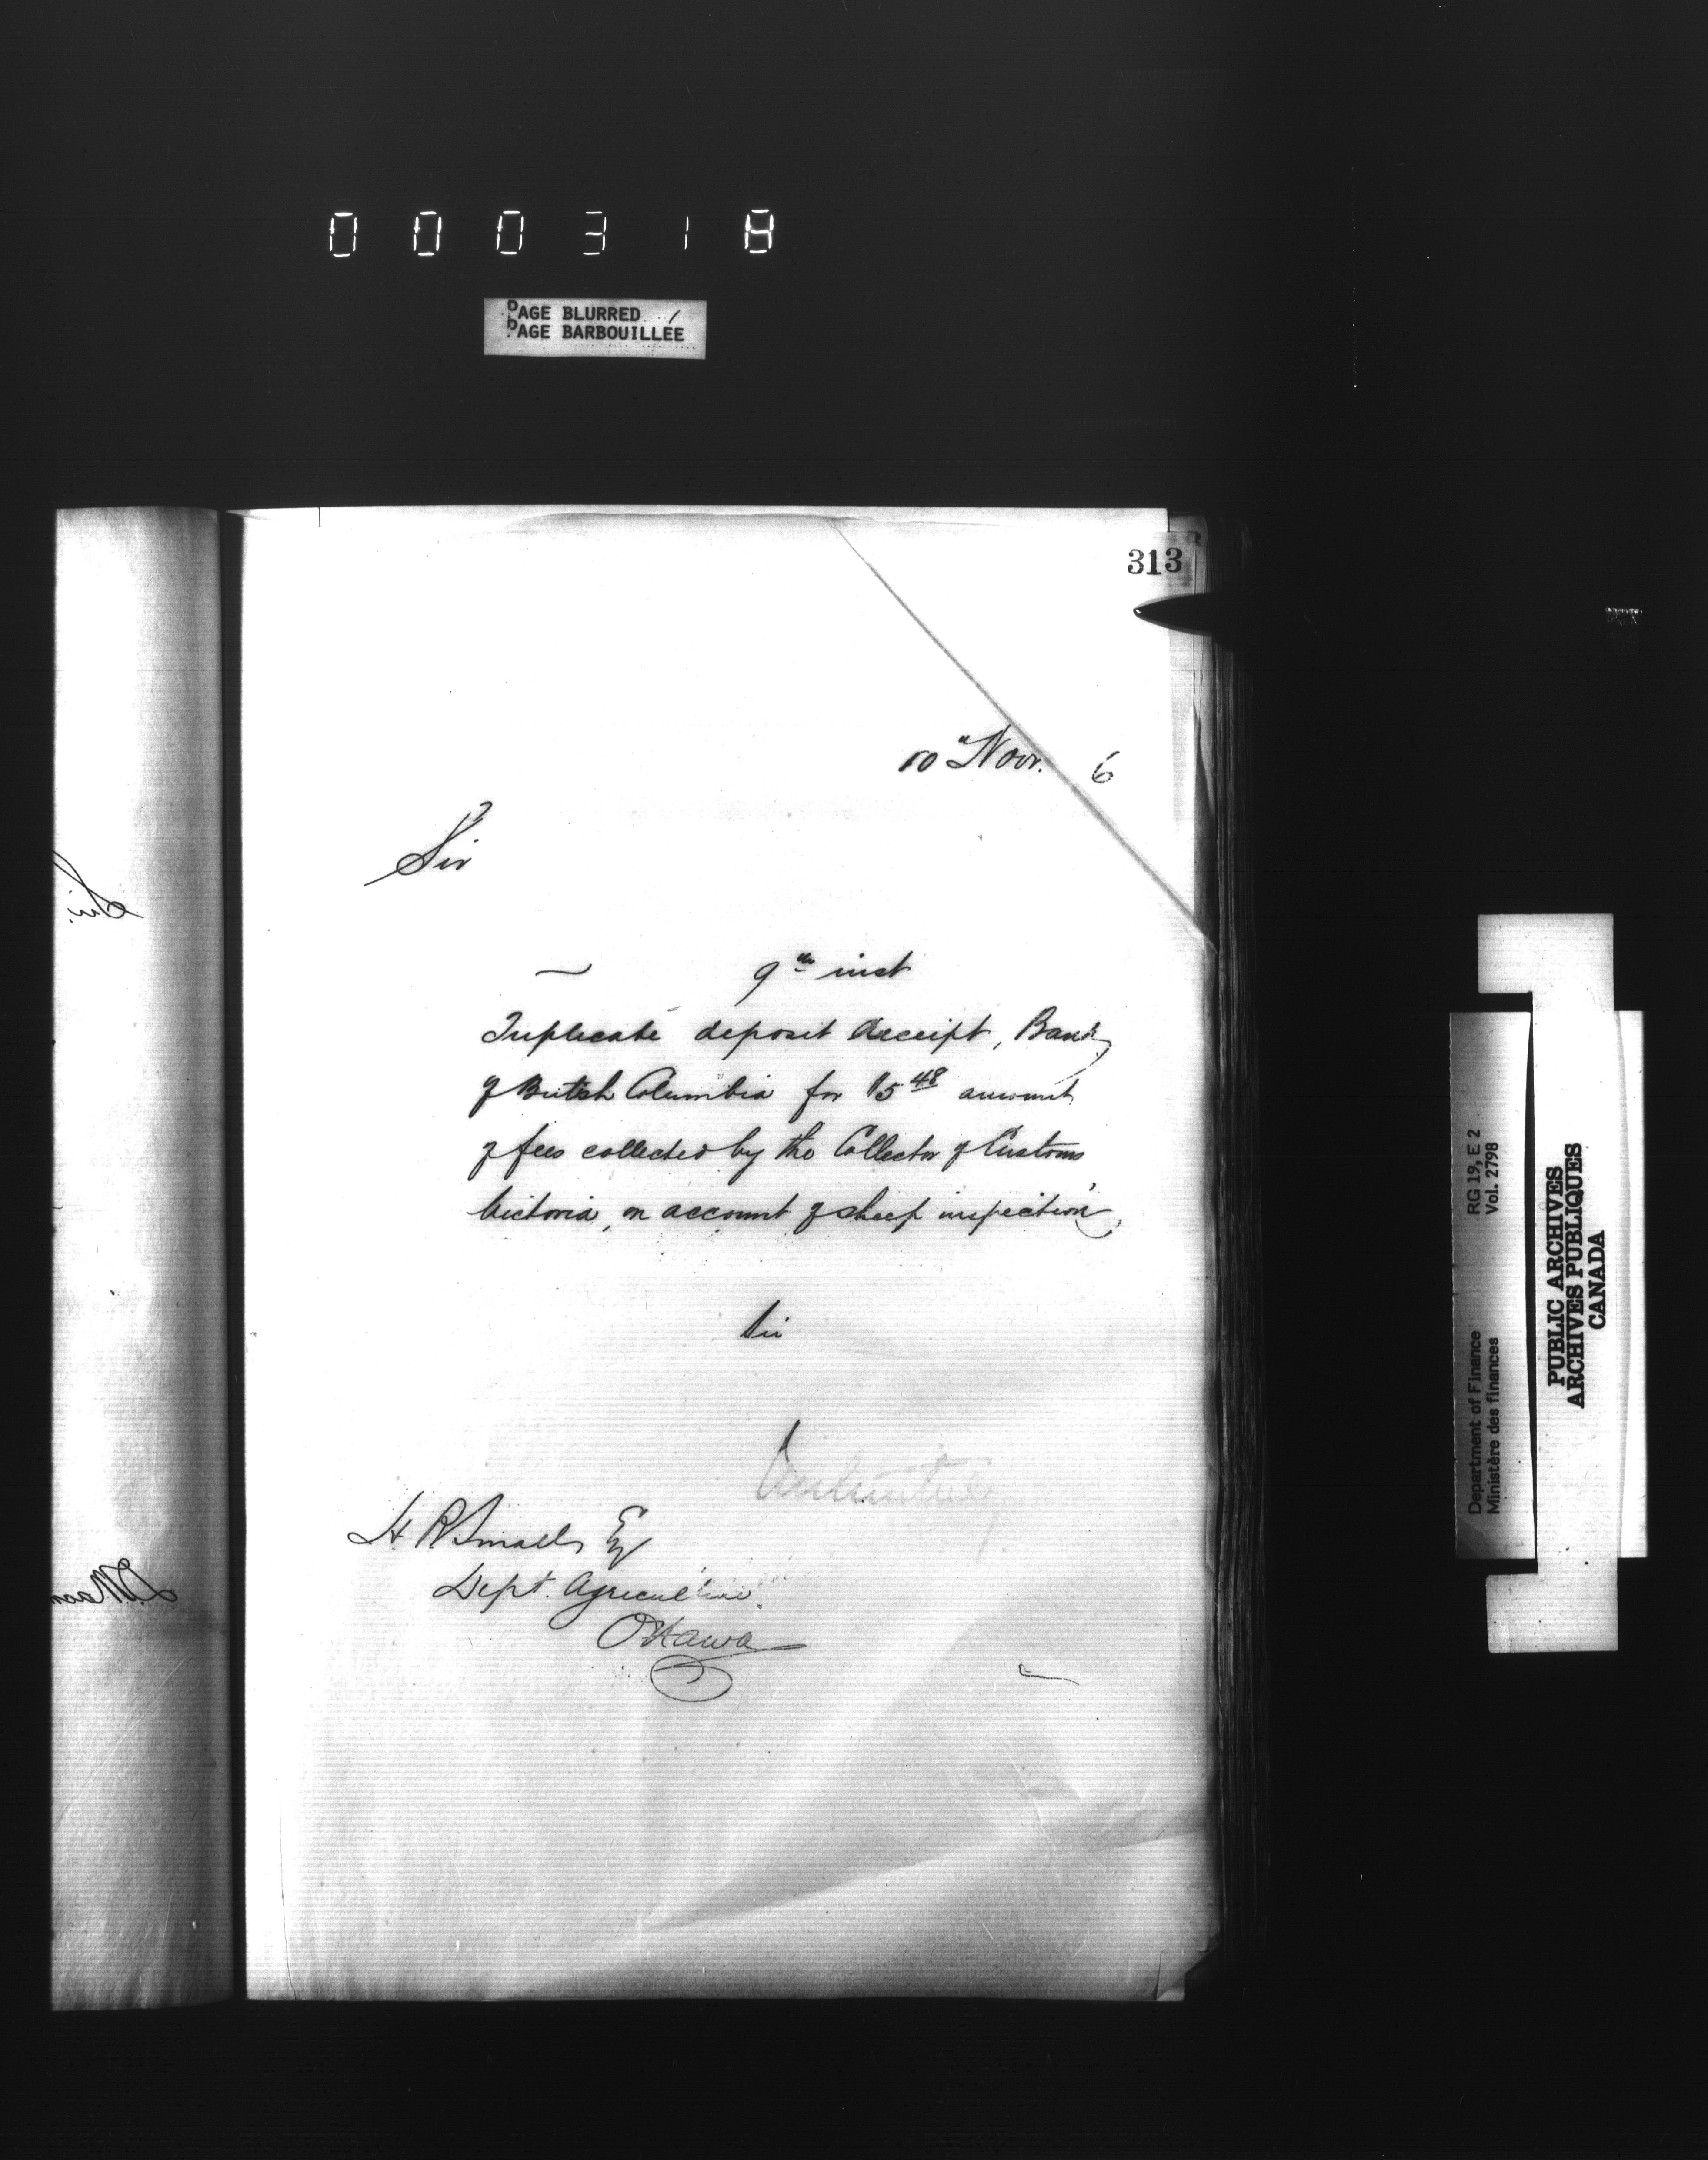 000318
PAGE BLURRED
PAGE BARBOUILLÉE
313
10th Novr. 6
Sir
9th inst
Duplicate deposit Receipt, Bank
of British Columbia for $5 48 amount
of fees collected by the Collector of Customs
Victoria, on account of sheep inspection,
Sir
H. B. Small Esq
Dept. Agriculture.
Ottawa
Department of Finance RG 19, E 2
Ministère des finances Vol. 2798
PUBLIC ARCHIVES
ARCHIVES PUBLIQUES
CANADA